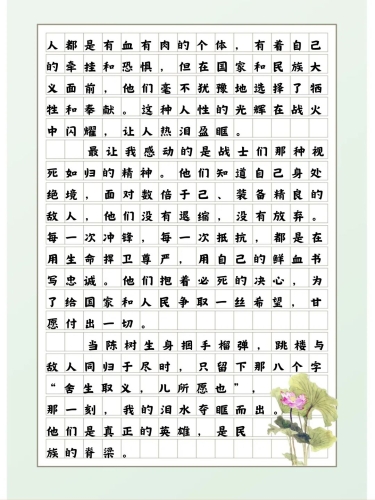 人都是有血有肉的个体，有着自己
的牵挂和恐惧，但在国家和民族大
义面前，他们毫不犹豫地选择了牺
牲和奉献。这种人性的光辉在战火
中闪耀，让人热泪盈眶。
最让我感动的是战士们那种视
死如归的精神。他们知道自己身处
绝境，面对数倍于己、装备精良的
敌人，他们没有退缩，没有放弃。
每一次冲锋，每一次抵抗，都是在
用生命捍卫尊严，用自己的鲜血书
写忠诚。他们抱着必死的决心，为
了给国家和人民争取一丝希望，甘
愿付出一切。
当陈树生身捆手榴弹，跳楼与
敌人同归于尽时，只留下那八个字
“舍生取义，儿所愿也”，
那一刻，我的泪水夺眶而出。
他们是真正的英雄，是民
族的脊梁。